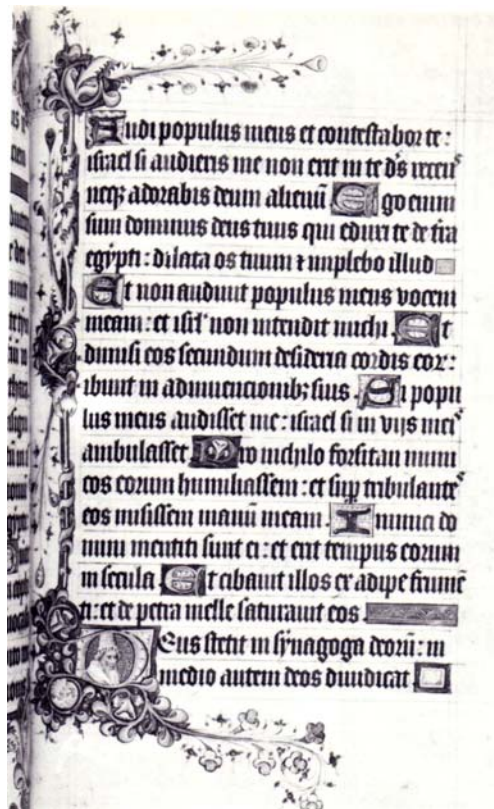 Audi populus meus et contestabor te :
israel si audieris me non erit in te ds recens
neq; adorabis deum alienū Ego enim
sum dominus deus tuus qui eduxi te de t̄ra
egypti : dilata os tuum ⁊ implebo illud
Et non audiuit populus meus vocem
meam : et isrl' non intendit michi . Et
dimisi eos secundum desideria cordis eor :
ibunt in adinuencionib; suis . Si popu
lus meus audisset me : israel si in vijs meis
ambulasset Pro nichilo forsitan inimi
cos eorum humiliassem : et sup tribulantes
eos misissem manū meam . Inimici do
mini mentiti sunt ei : et erit tempus eorum
in secula Et cibauit illos ex adipe frumē
ti : et de petra melle saturauit eos .
Deus stetit in synagoga deorū : in
medio autem deos diiudicat